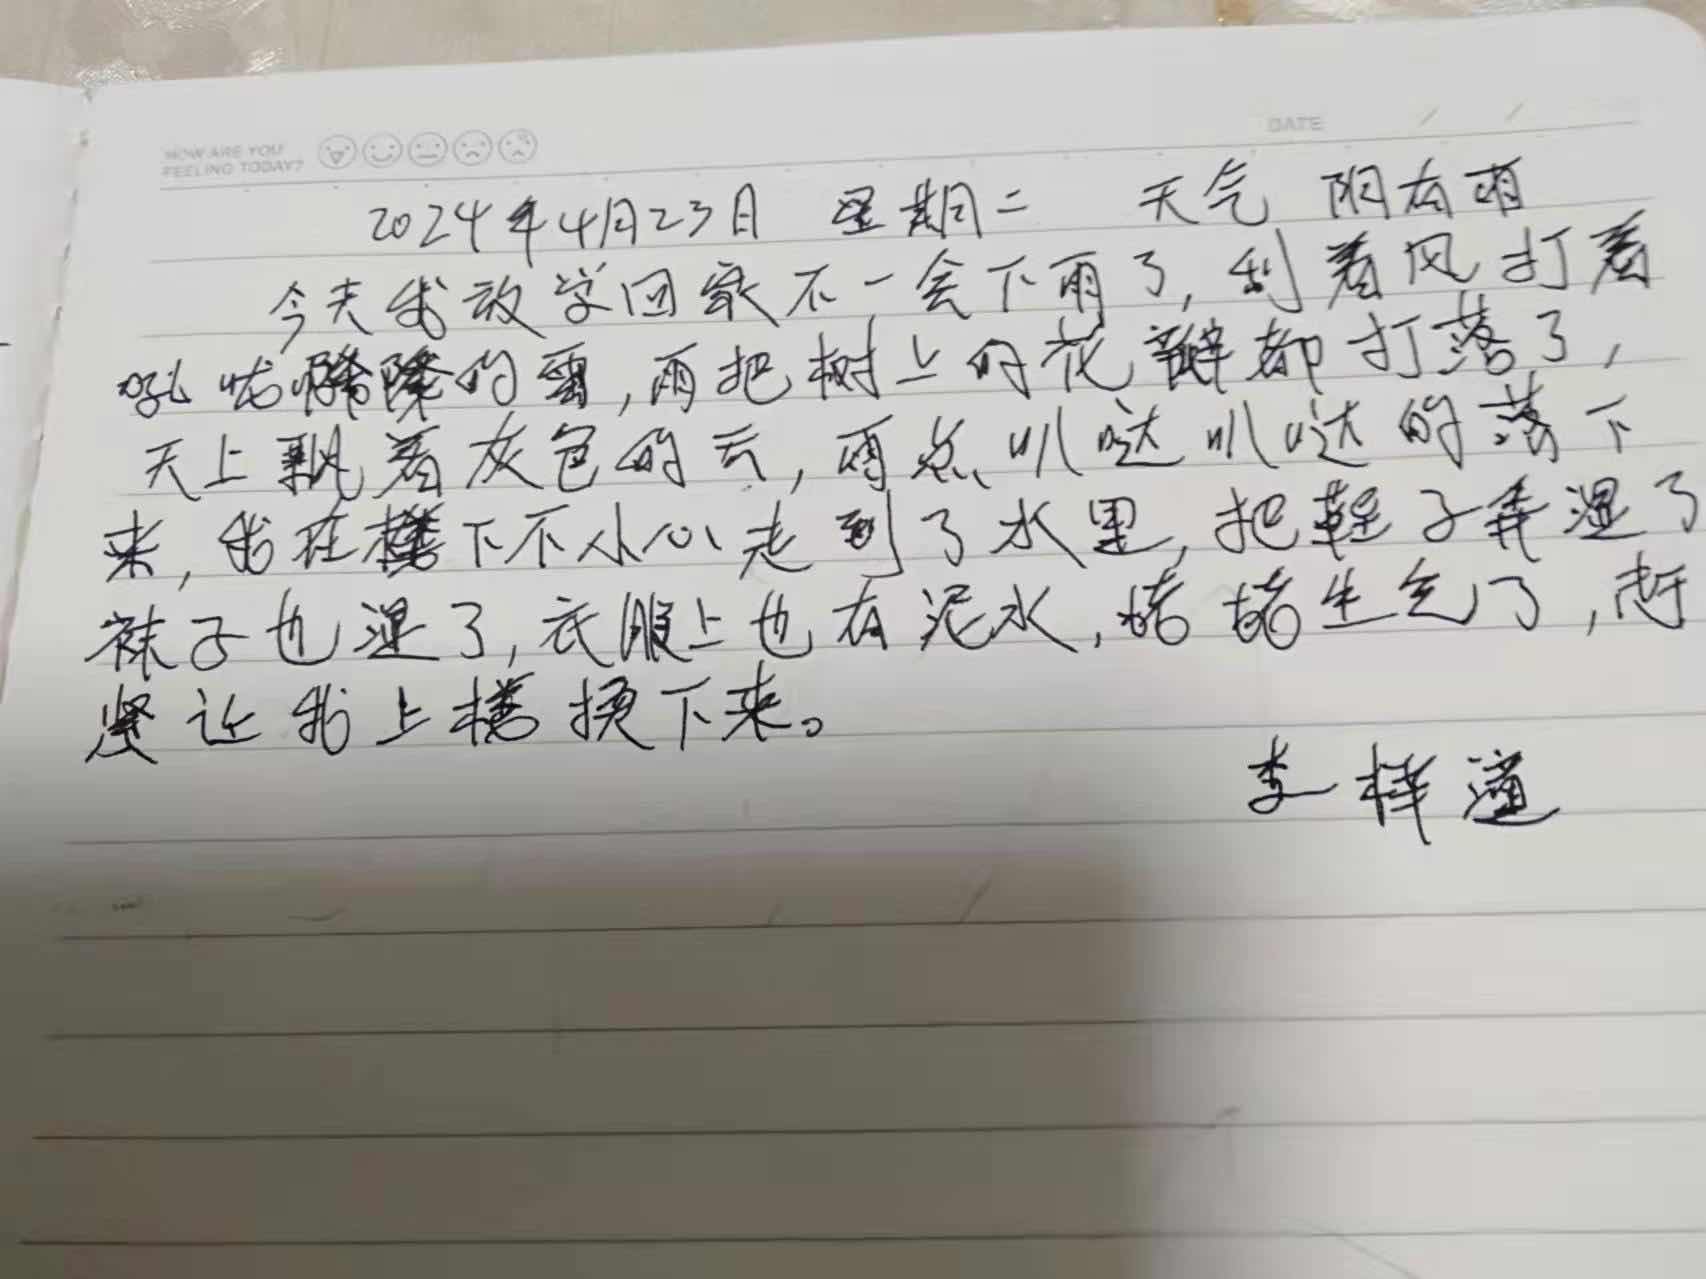 HOW ARE YOU
FEELING TODAY?
DATE / /
2024年4月23日 星期二 天气 阴有雨
今天我放学回家不一会下雨了,刮着风打着
隆隆的雷,雨把树上的花瓣都打落了,
天上飘着灰色的云,雨点叭哒叭哒的落下
来,我在楼下不小心走到了水里,把鞋子弄湿了
袜子也湿了,衣服上也有泥水,姥姥生气了,赶
紧让我上楼换下来。
李梓